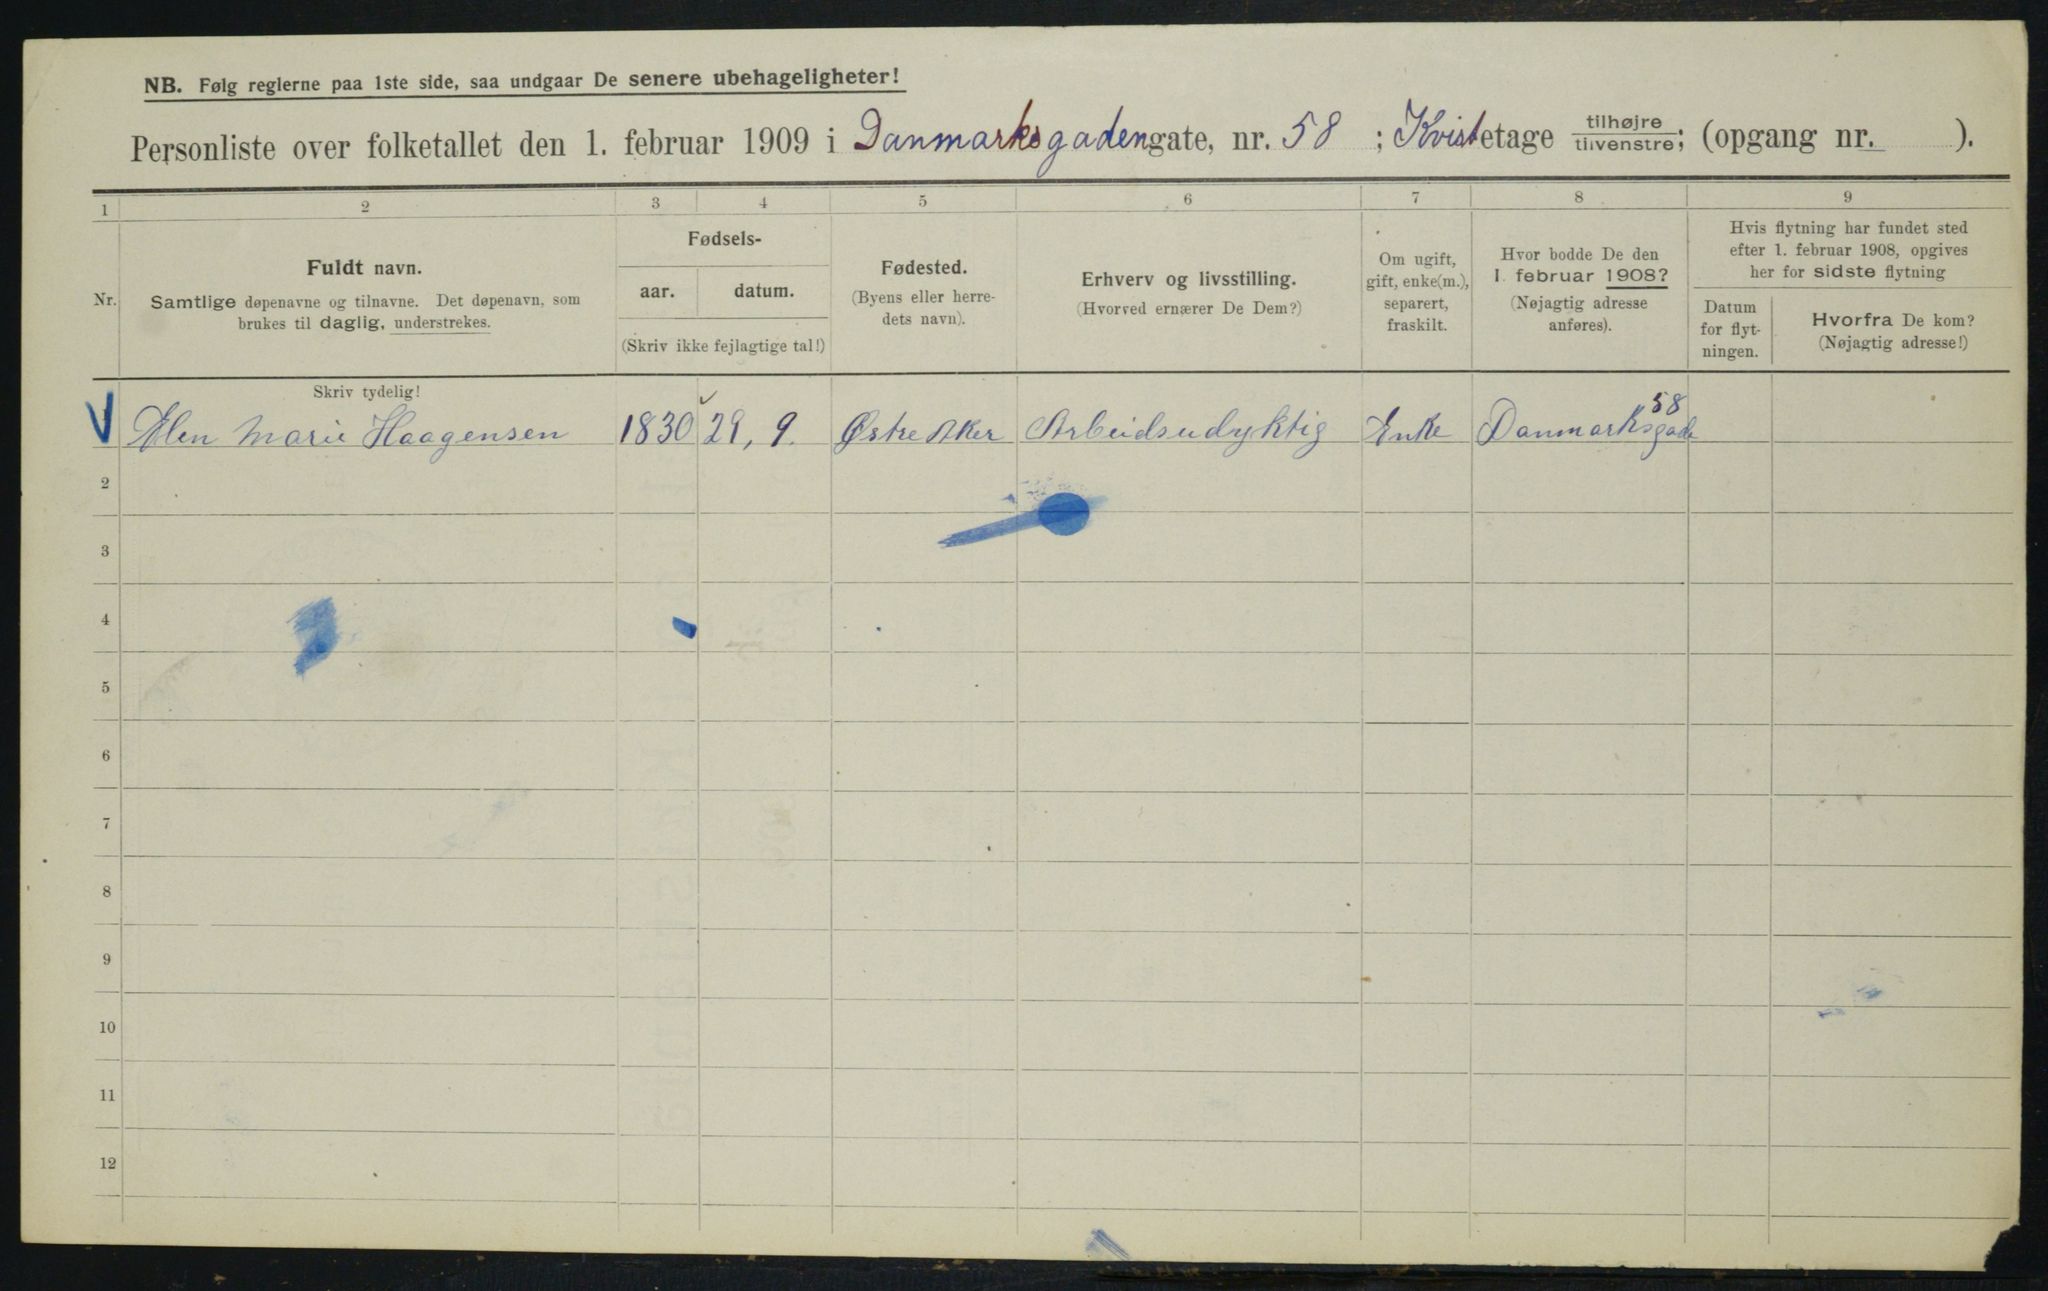 NB. Følg reglerne paa 1ste side, saa undgaar De senere ubehageligheter!
Personliste over folketallet den 1. februar 1909 i Danmarksgadengate, nr. 58 ; Kvistetage tilhøjre/tilvenstre; (opgang nr. ).
1 2 3 4 5 6 7 8 9
Nr.
Fuldt navn.
Samtlige døpenavne og tilnavne. Det døpenavn, som
brukes til daglig, understrekes.
Fødsels-
aar. datum.
(Skriv ikke fejlagtige tal!)
Fødested.
(Byens eller herre-
dets navn).
Erhverv og livsstilling.
(Hvorved ernærer De Dem?)
Om ugift,
gift, enke(m.),
separert,
fraskilt.
Hvor bodde De den
1. februar 1908?
(Nøjagtig adresse
anføres).
Hvis flytning har fundet sted
efter 1. februar 1908, opgives
her for sidste flytning
Datum
for flyt-
ningen.
Hvorfra De kom?
(Nøjagtig adresse!)
Skriv tydelig!
Elen Marie Haagensen 1830 29, 9. Østre Aker Arbeidsudyktig Enke Danmarksgade 58
2
3
4
5
6
7
8
9
10
11
12